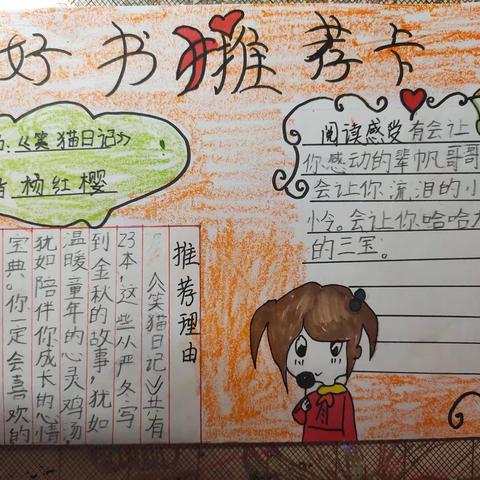 好书推荐卡
名:《笑猫日记》
者 杨红樱
阅读感受 有会让
你感动的辈帆哥哥
会让你流泪的小
怜。会让你哈哈大
的三宝。
推荐理由
《笑猫日记》共有
23本,这些从严冬写
到金秋的故事,犹如
温暖童年的心灵鸡汤,
犹如陪伴你成长的心情
宝典。你一定会喜欢的